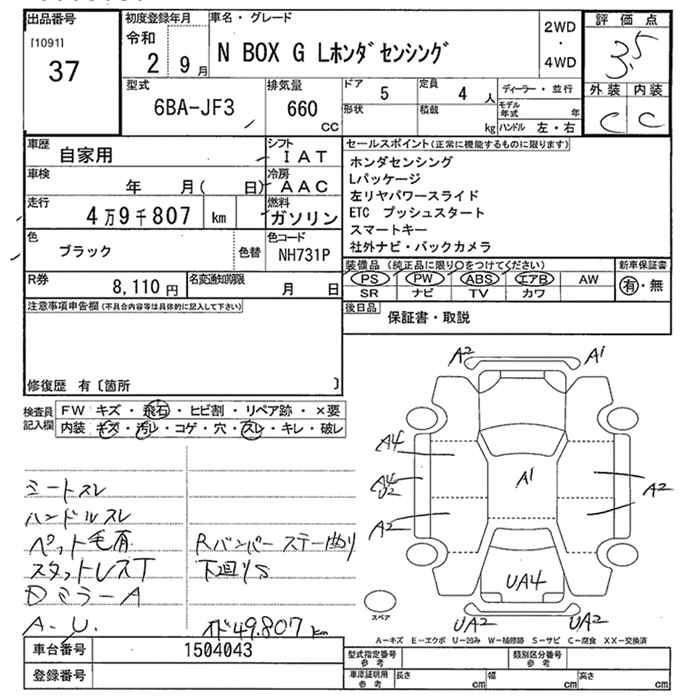 出品番号
[1091]
37
初度登録年月
令和
2 9月
車名・グレード
N BOX G Lホンダセンシング
2WD
・
4WD
評価点
3.5
外装 内装
C C
型式
6BA-JF3
排気量
660
CC
ドア
5
定員
4人
形状
積載
kg
ディーラー・並行
モデル年式 年
ハンドル 左・右
車歴
自家用
シフト
IAT
車検
年 月( 日)
冷房
AAC
走行
4万9千807 km
燃料
ガソリン
色
ブラック
色替
色コード
NH731P
R券
8,110円
名変通知期限
月 日
セールスポイント(正常に機能するものに限ります)
ホンダセンシング
Lパッケージ
左リヤパワースライド
ETC プッシュスタート
スマートキー
社外ナビ・バックカメラ
装備品(純正品に限り○をつけてください)
PS PW ABS エアB AW
SR ナビ TV カワ
新車保証書
有・無
後日品
保証書・取説
注意事項申告欄(不具合内容等は具体的に記入して下さい)
修復歴 有〔箇所 〕
検査員
記入欄
FW キズ・飛石・ヒビ割・リペア跡・×要
内装 キズ・汚レ・コゲ・穴・スレ・キレ・破レ
シートスレ
ハンドルスレ
ペット毛有
スタットレスT
Dミラー A
A-U.
Rバンパーステー曲り
下廻りS
メド49.807km
A2 A1
A4
A4
U2
A2
A1
A2
UA4
UA2 UA2
スペア
A-キズ E-エクボ U-凹み W-補修跡 S-サビ C-腐食 XX-交換済
車台番号
1504043
登録番号
型式指定番号
参考
類別区分番号
参考
車庫証明用
参考
長さ cm
幅 cm
高さ cm